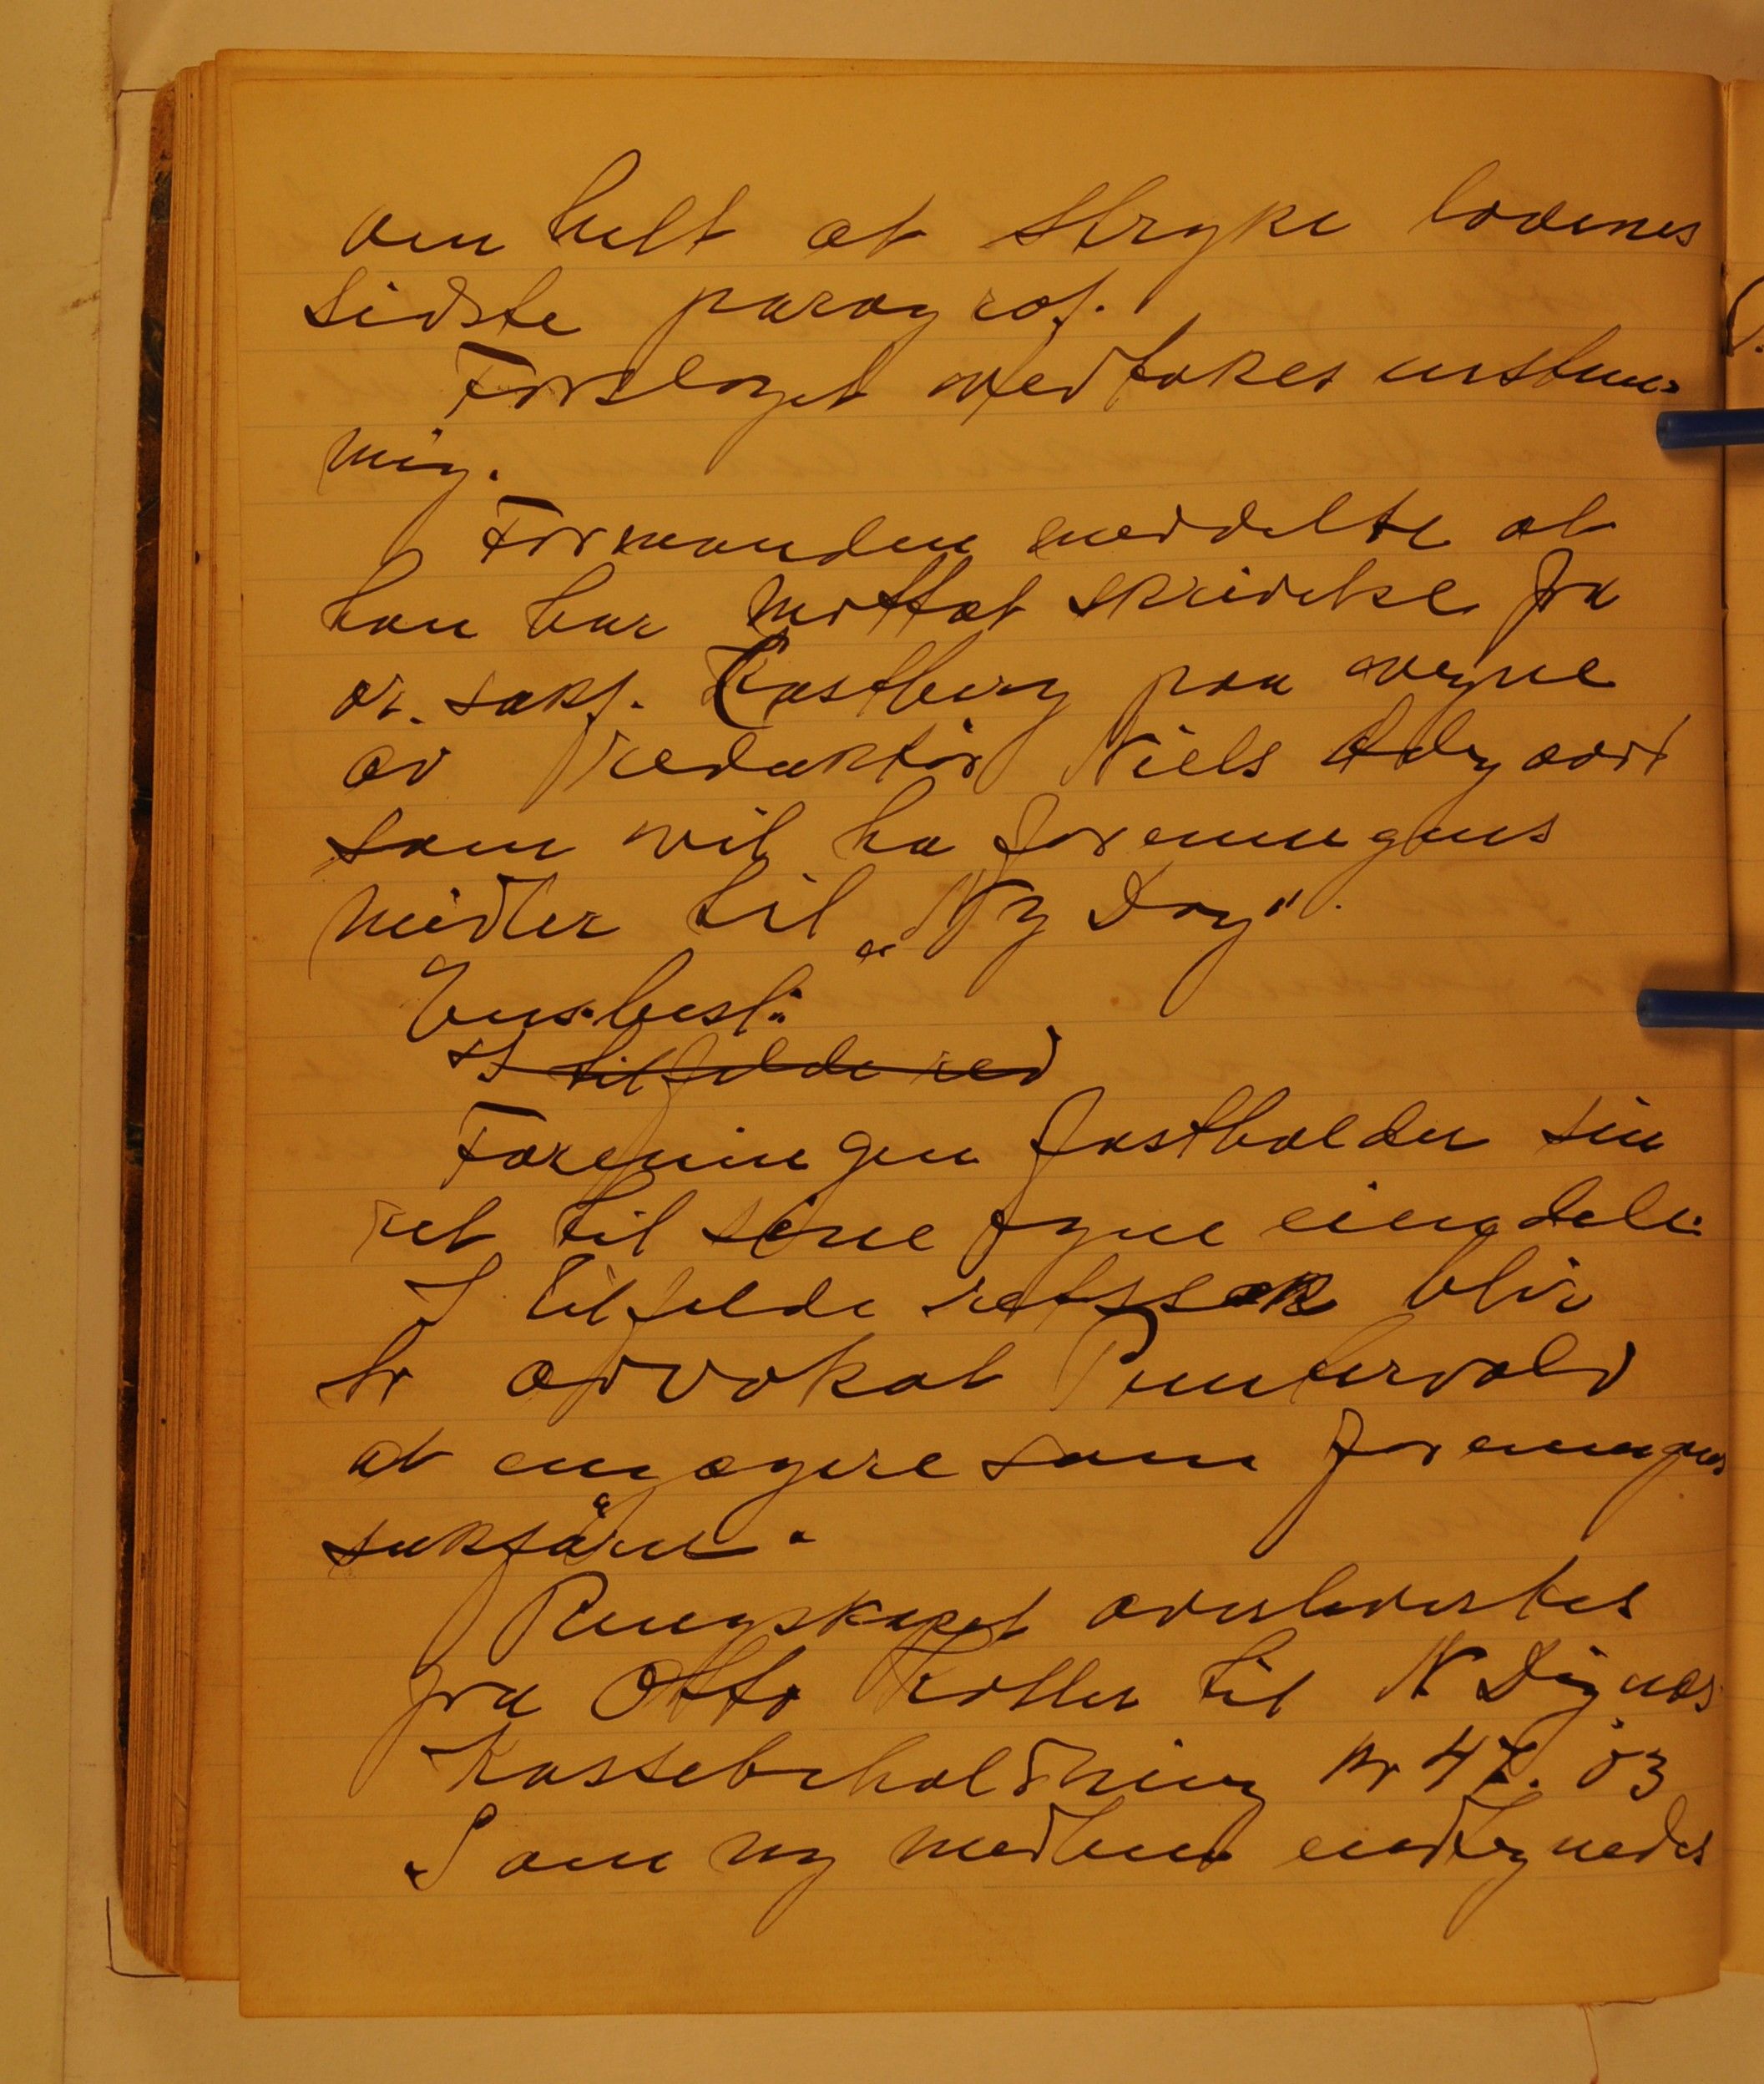 om helt at stryke lovenes
sidste paragraf.
Forslaget vedtokes enstem-
mig.
Formanden meddelte at
han har mottat skrivelse fra
or. sakf. Kastberg paa vegne
av redaktör Niels Ødegaard
som vil ha foreningens
midler til „Ny Dag".
Ens. besl:
I tilfelde red
Foreningen fastholder sin
ret til sine egne eiendele.
I tilfelde retssak blir
hr advokat Puntervold
at engagere som foreningens
sakfører.
Regnskapet overlevertes
fra Otto Koller til N Dignæs
Kassebeholdning kr 47.03
Som ny medlem indtegnedes